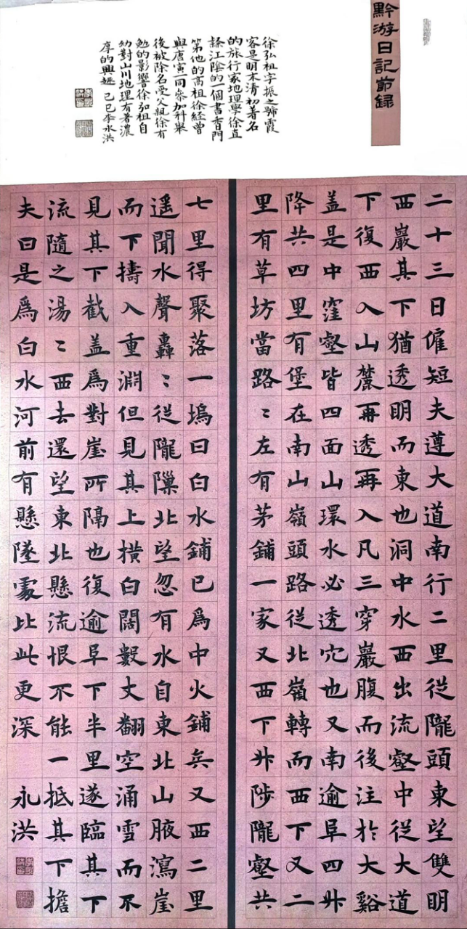 黔游日記節錄
徐弘祖字振之號霞
客是明末清初著名
的旅行家地理學徐直
隸江陰的一個書香門
第他的高祖徐經曾
與唐寅一同參加科舉
後被除名受父祖徐有
勉的影響徐弘祖自
幼對山川地理有著濃
厚的興趣 己巳李永洪
二十三日僱短夫遵大道南行二里從隴頭東望雙明
西巖其下猶透明而東也洞中水西出流壑中從大道
下復西入山麓再透再入凡三穿巖腹而後注於大谿
盖是中窪壑皆四面山環水必透穴也又南逾阜四升
降共四里有堡在南山嶺頭路從北嶺轉而西下又二
里有草坊當路〻左有茅鋪一家又西下升陟隴壑共
七里得聚落一塢曰白水鋪已爲中火鋪矣又西二里
遥聞水聲轟〻從隴隟北望忽有水自東北山腋瀉崖
而下擣入重淵但見其上横白闊數丈翻空涌雪而不
見其下截盖爲對崖所隔也復逾阜下半里遂臨其下
流隨之湯〻西去還望東北懸流恨不能一抵其下擔
夫曰是爲白水河前有懸墜處比此更深 永洪